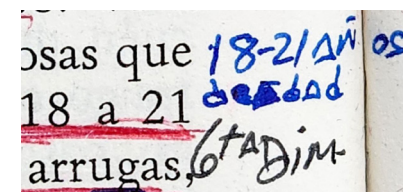 osas que 18-21 AÑOS
18 a 21 de edad
arrugas, 6ta Dim